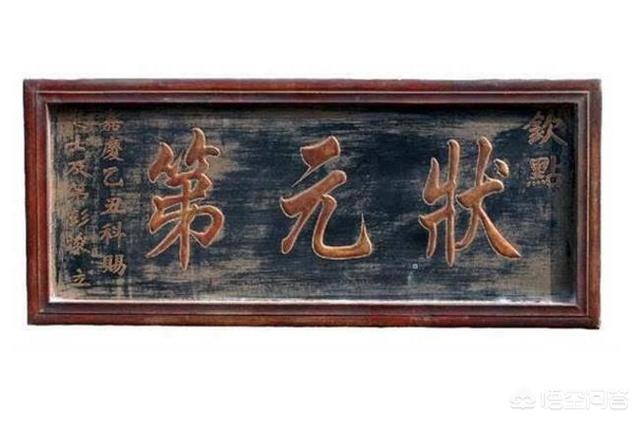 欽點
狀元第
嘉慶乙丑科賜
進士及第彭浚立
悟空问答